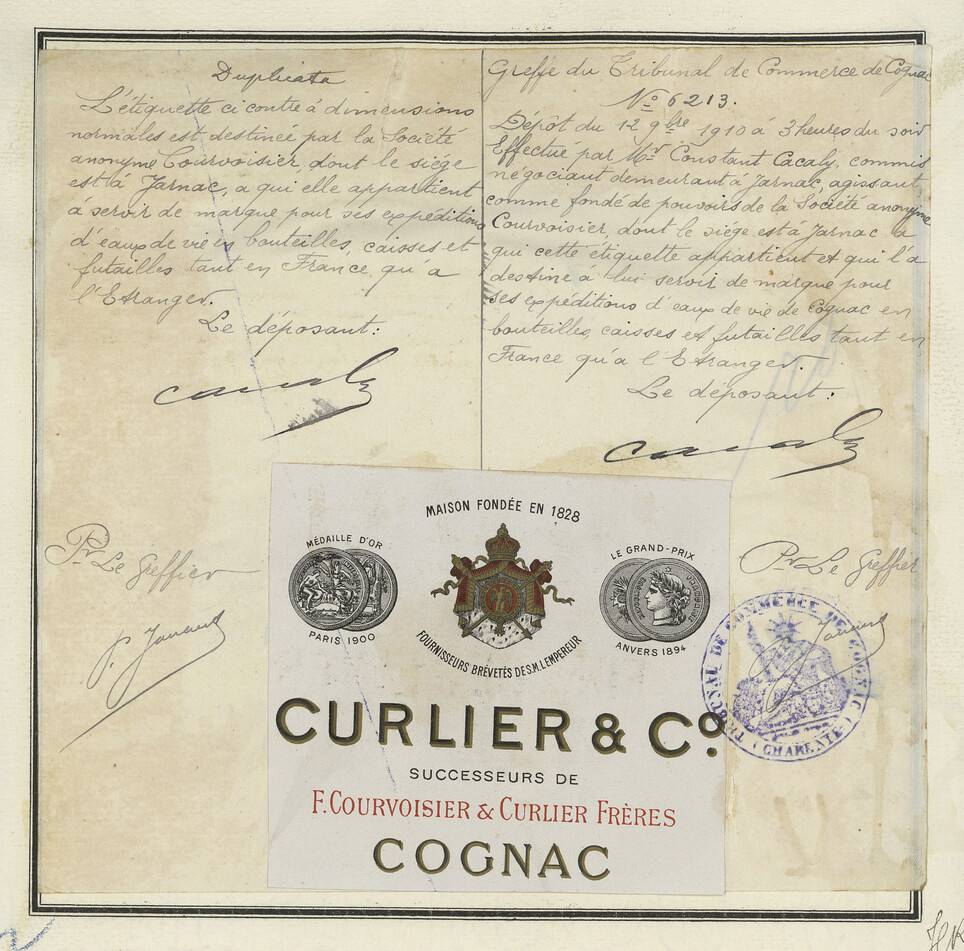 Duplicata
L'étiquette ci contre à dimensions
normales est destinée par la Société
anonyme Courvoisier, dont le siège
est à Jarnac, a qui elle appartient
à servir de marque pour ses expéditions
d'eaux de vie en bouteilles, caisses et
futailles tant en France qu'a
l'Etranger.
Le déposant:
Cacaly
Pr Le Greffier
Greffe du Tribunal de Commerce de Cognac
No 6213.
Dépôt du 12 9bre 1910 à 3 heures du soir
Effectué par Mr Constant Cacaly, commis
négociant demeurant à Jarnac, agissant
comme fondé de pouvoirs de la Société anonyme
Courvoisier, dont le siège est à Jarnac a
qui cette étiquette appartient et qui l'a
destine à lui servir de marque pour
ses expéditions d'eaux de vie de Cognac en
bouteilles, caisses et futailles tant en
France qu'a l'Etranger.
Le déposant:
Cacaly
Pr Le Greffier
TRIBUNAL DE COMMERCE DE COGNAC
(CHARENTE)
MAISON FONDÉE EN 1828
MÉDAILLE D'OR
PARIS 1900
LE GRAND-PRIX
ANVERS 1894
FOURNISSEURS BRÉVETÉS DE S.M. L'EMPEREUR
CURLIER & Co.
SUCCESSEURS DE
F. COURVOISIER & CURLIER FRÈRES
COGNAC